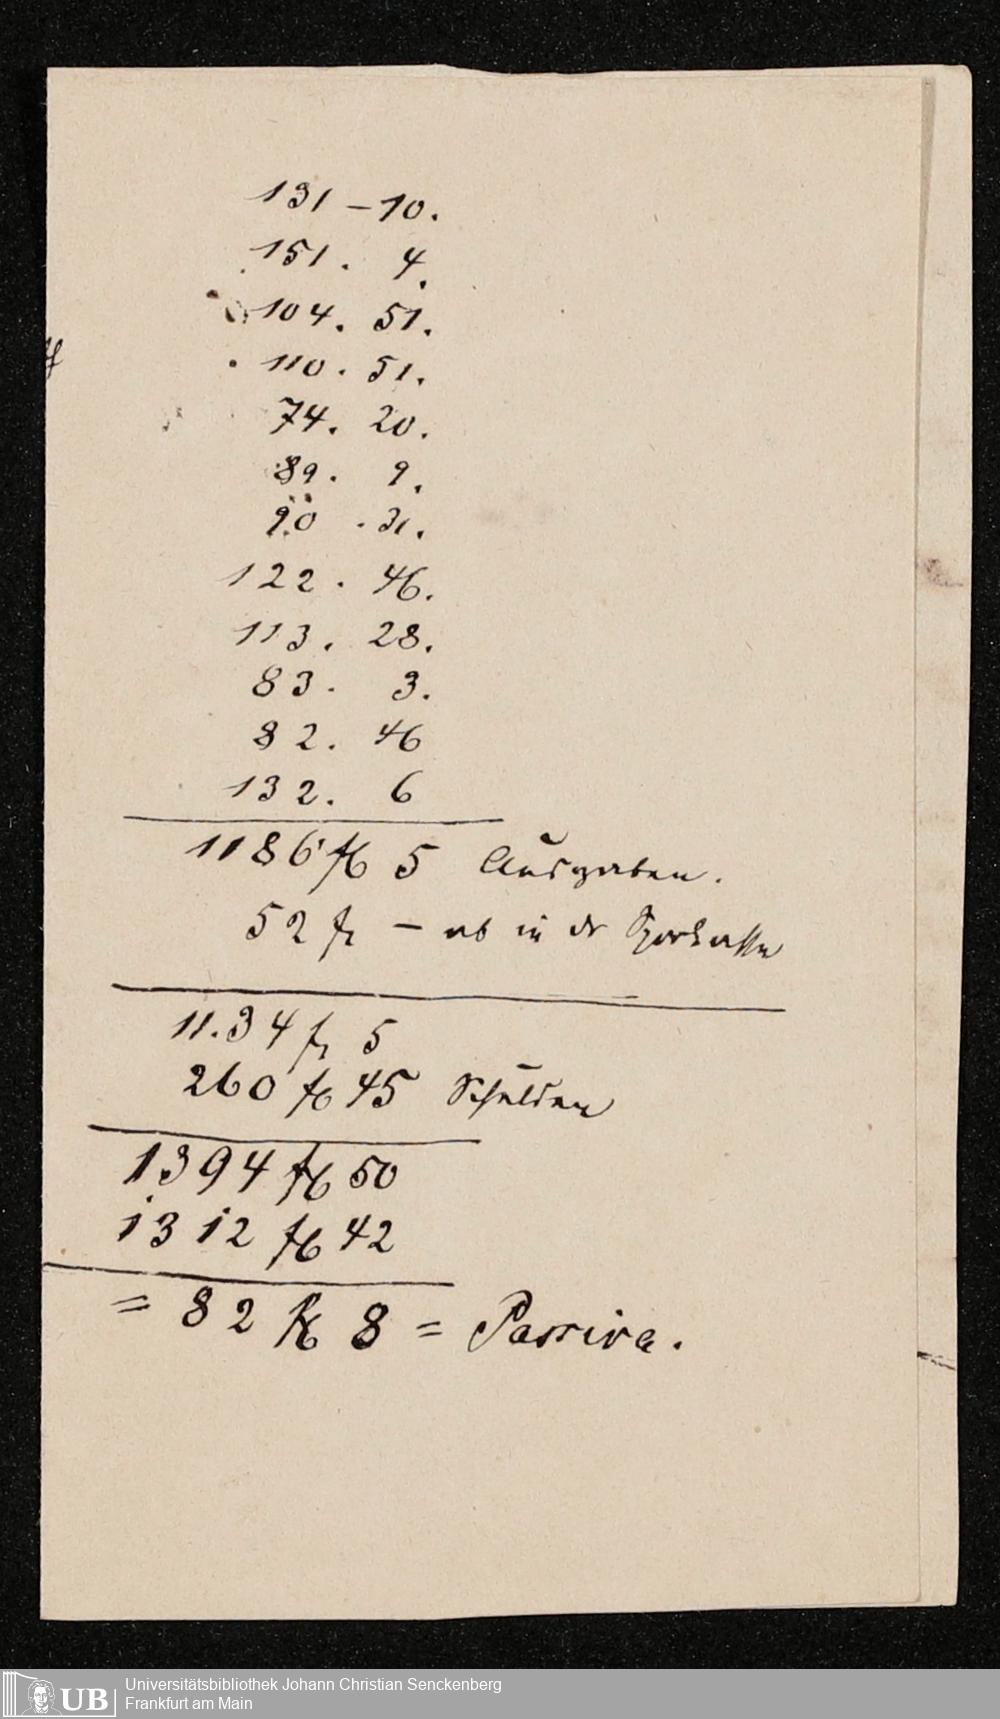 131 – 10.
151. 4.
104. 51.
110. 51.
74. 20.
89. 9.
90. 31.
122. 46.
113. 28.
83. 3.
82. 46
132. 6
1186 fl 5 Ausgaben.
52 fl – ab in dr Sparkasse
11.34 fl 5
260 fl 45 Schulden
1394 fl 50
1312 fl 42
= 82 fl 8 = Passiva.
UB Universitätsbibliothek Johann Christian Senckenberg
Frankfurt am Main